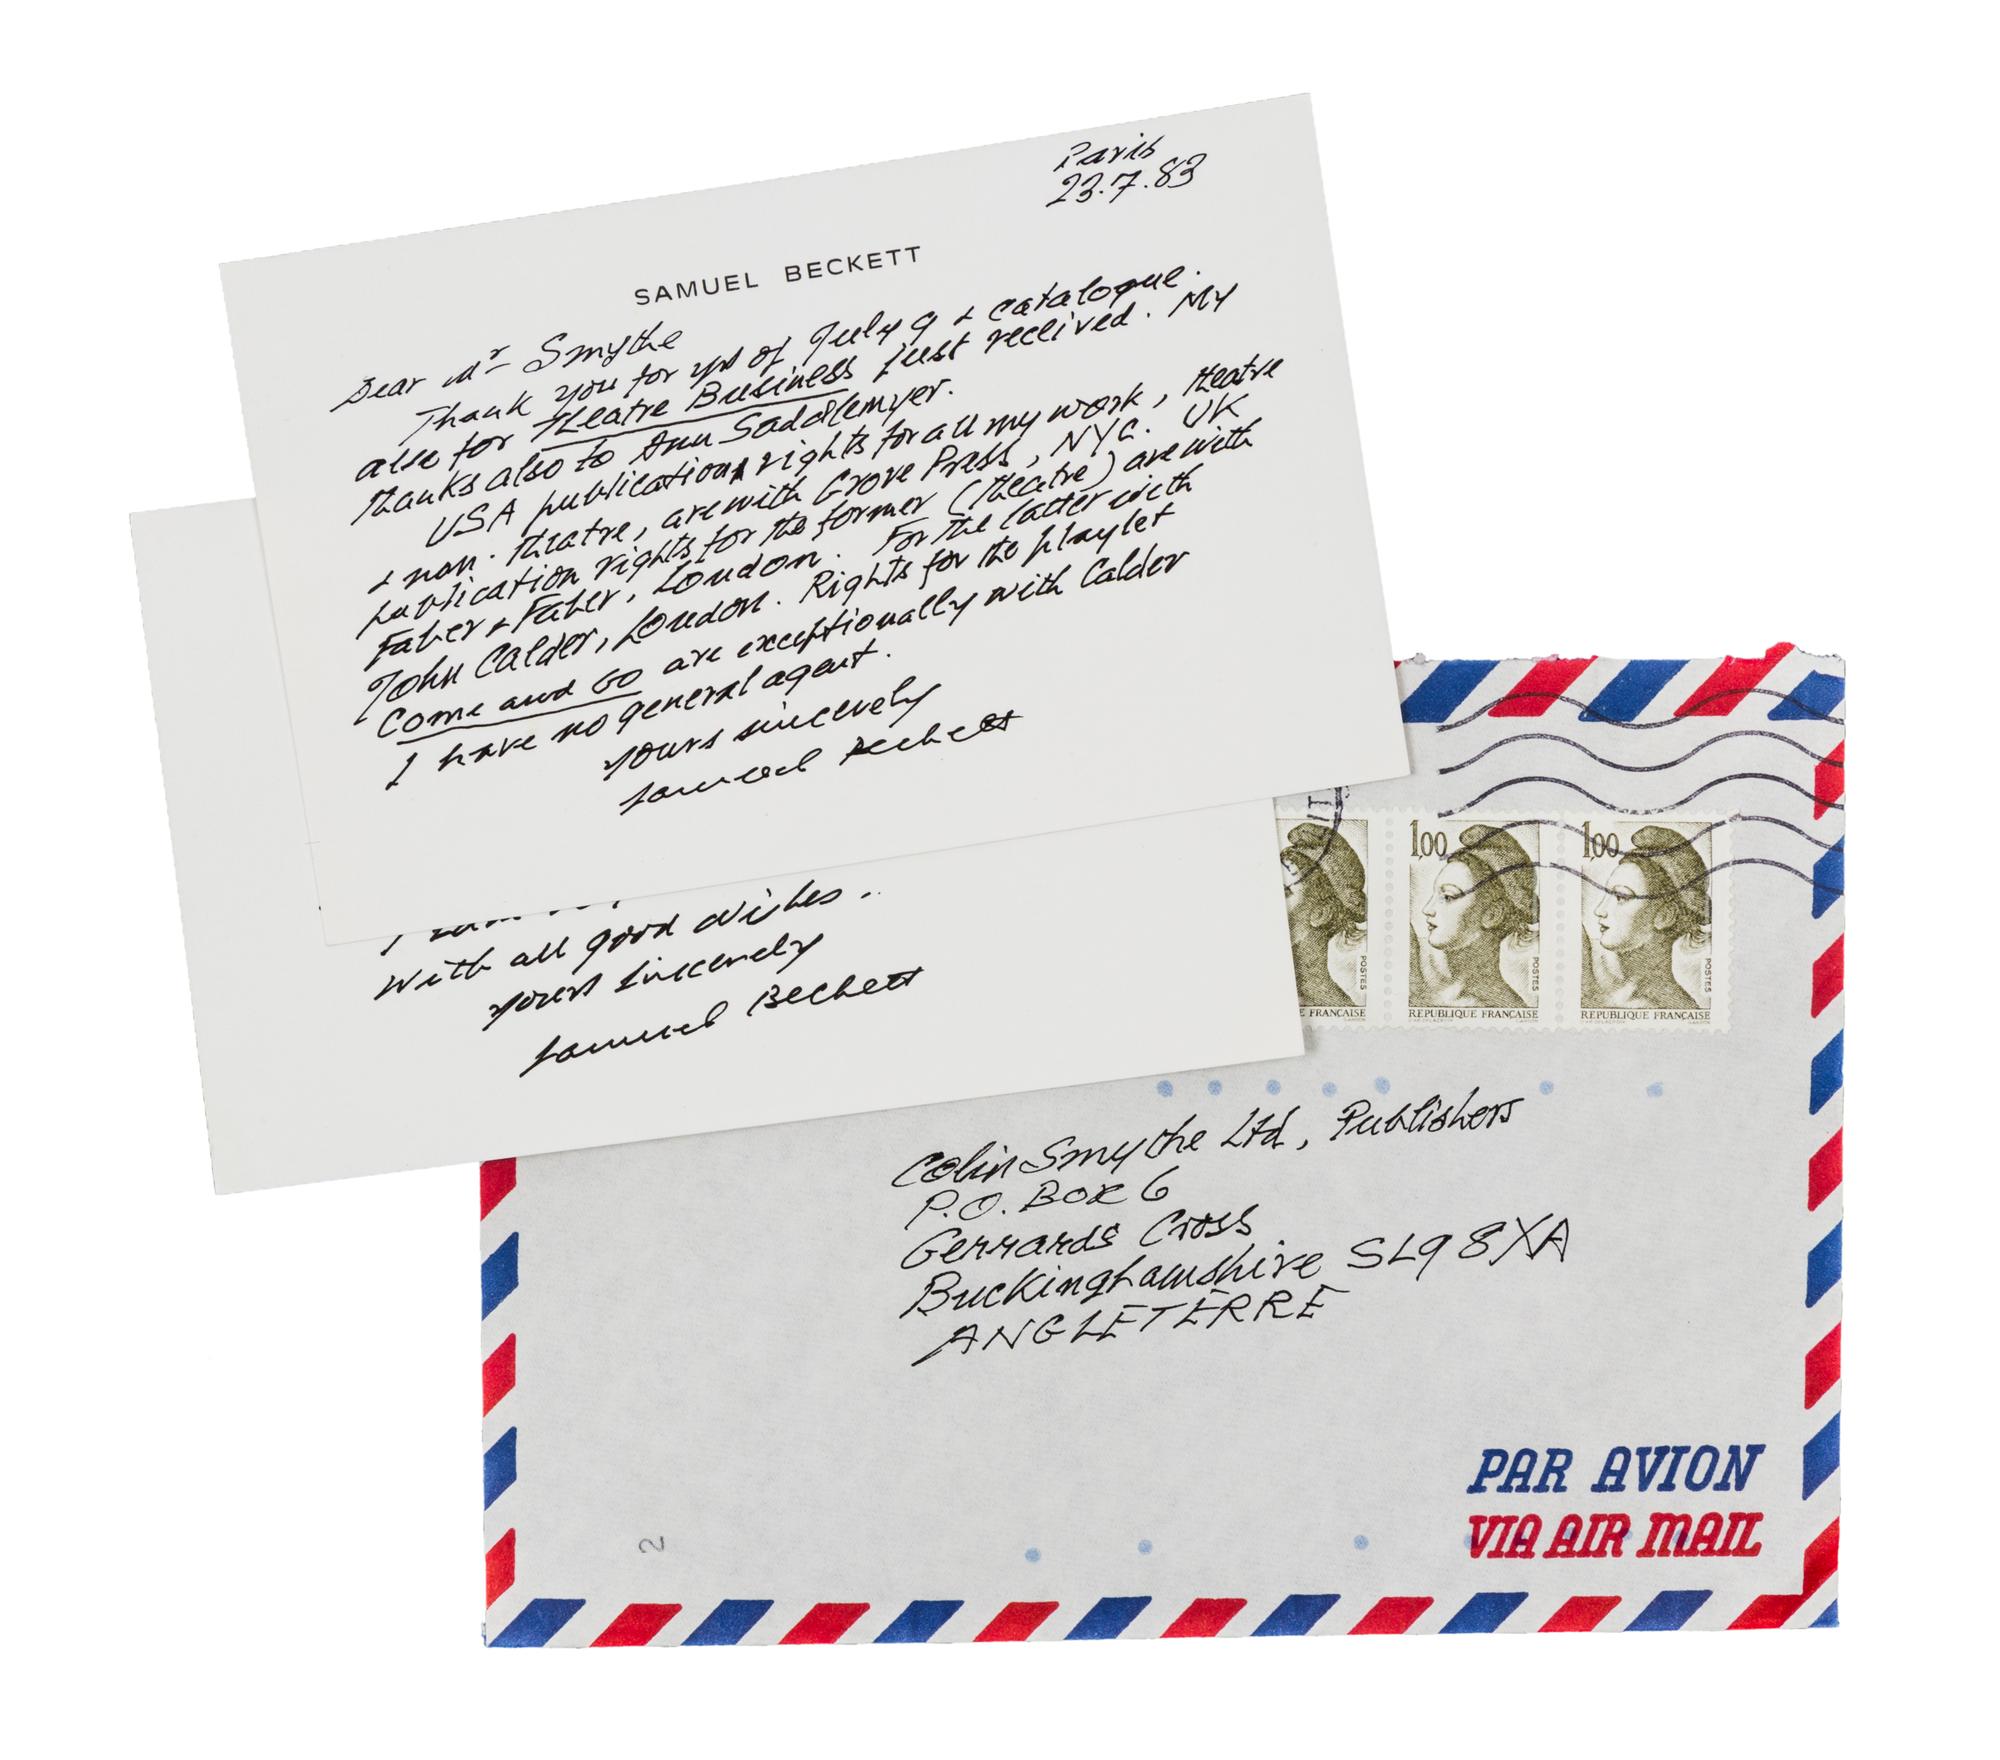 Paris
23.7.83
SAMUEL BECKETT
Dear Mr Smythe
Thank you for yrs of July 9 & catalogue.
also for Theatre Business just received. My
thanks also to Ann Saddlemyer.
USA publication rights for all my work, theatre
& non-theatre, are with Grove Press, NYC. UK
publication rights for the former (theatre) are with
Faber & Faber, London. For the latter with
John Calder, London. Rights for the playlet
Come and Go are exceptionally with Calder
I have no general agent.
Yours sincerely
Samuel Beckett
With all good wishes.
Yours sincerely
Samuel Beckett
1,00
1,00
POSTES
POSTES
POSTES
E FRANÇAISE
REPUBLIQUE FRANÇAISE
REPUBLIQUE FRANÇAISE
Colin Smythe Ltd, Publishers
P.O. Box 6
Gerrards Cross
Buckinghamshire SL9 8XA
ANGLETERRE
PAR AVION
VIA AIR MAIL
2